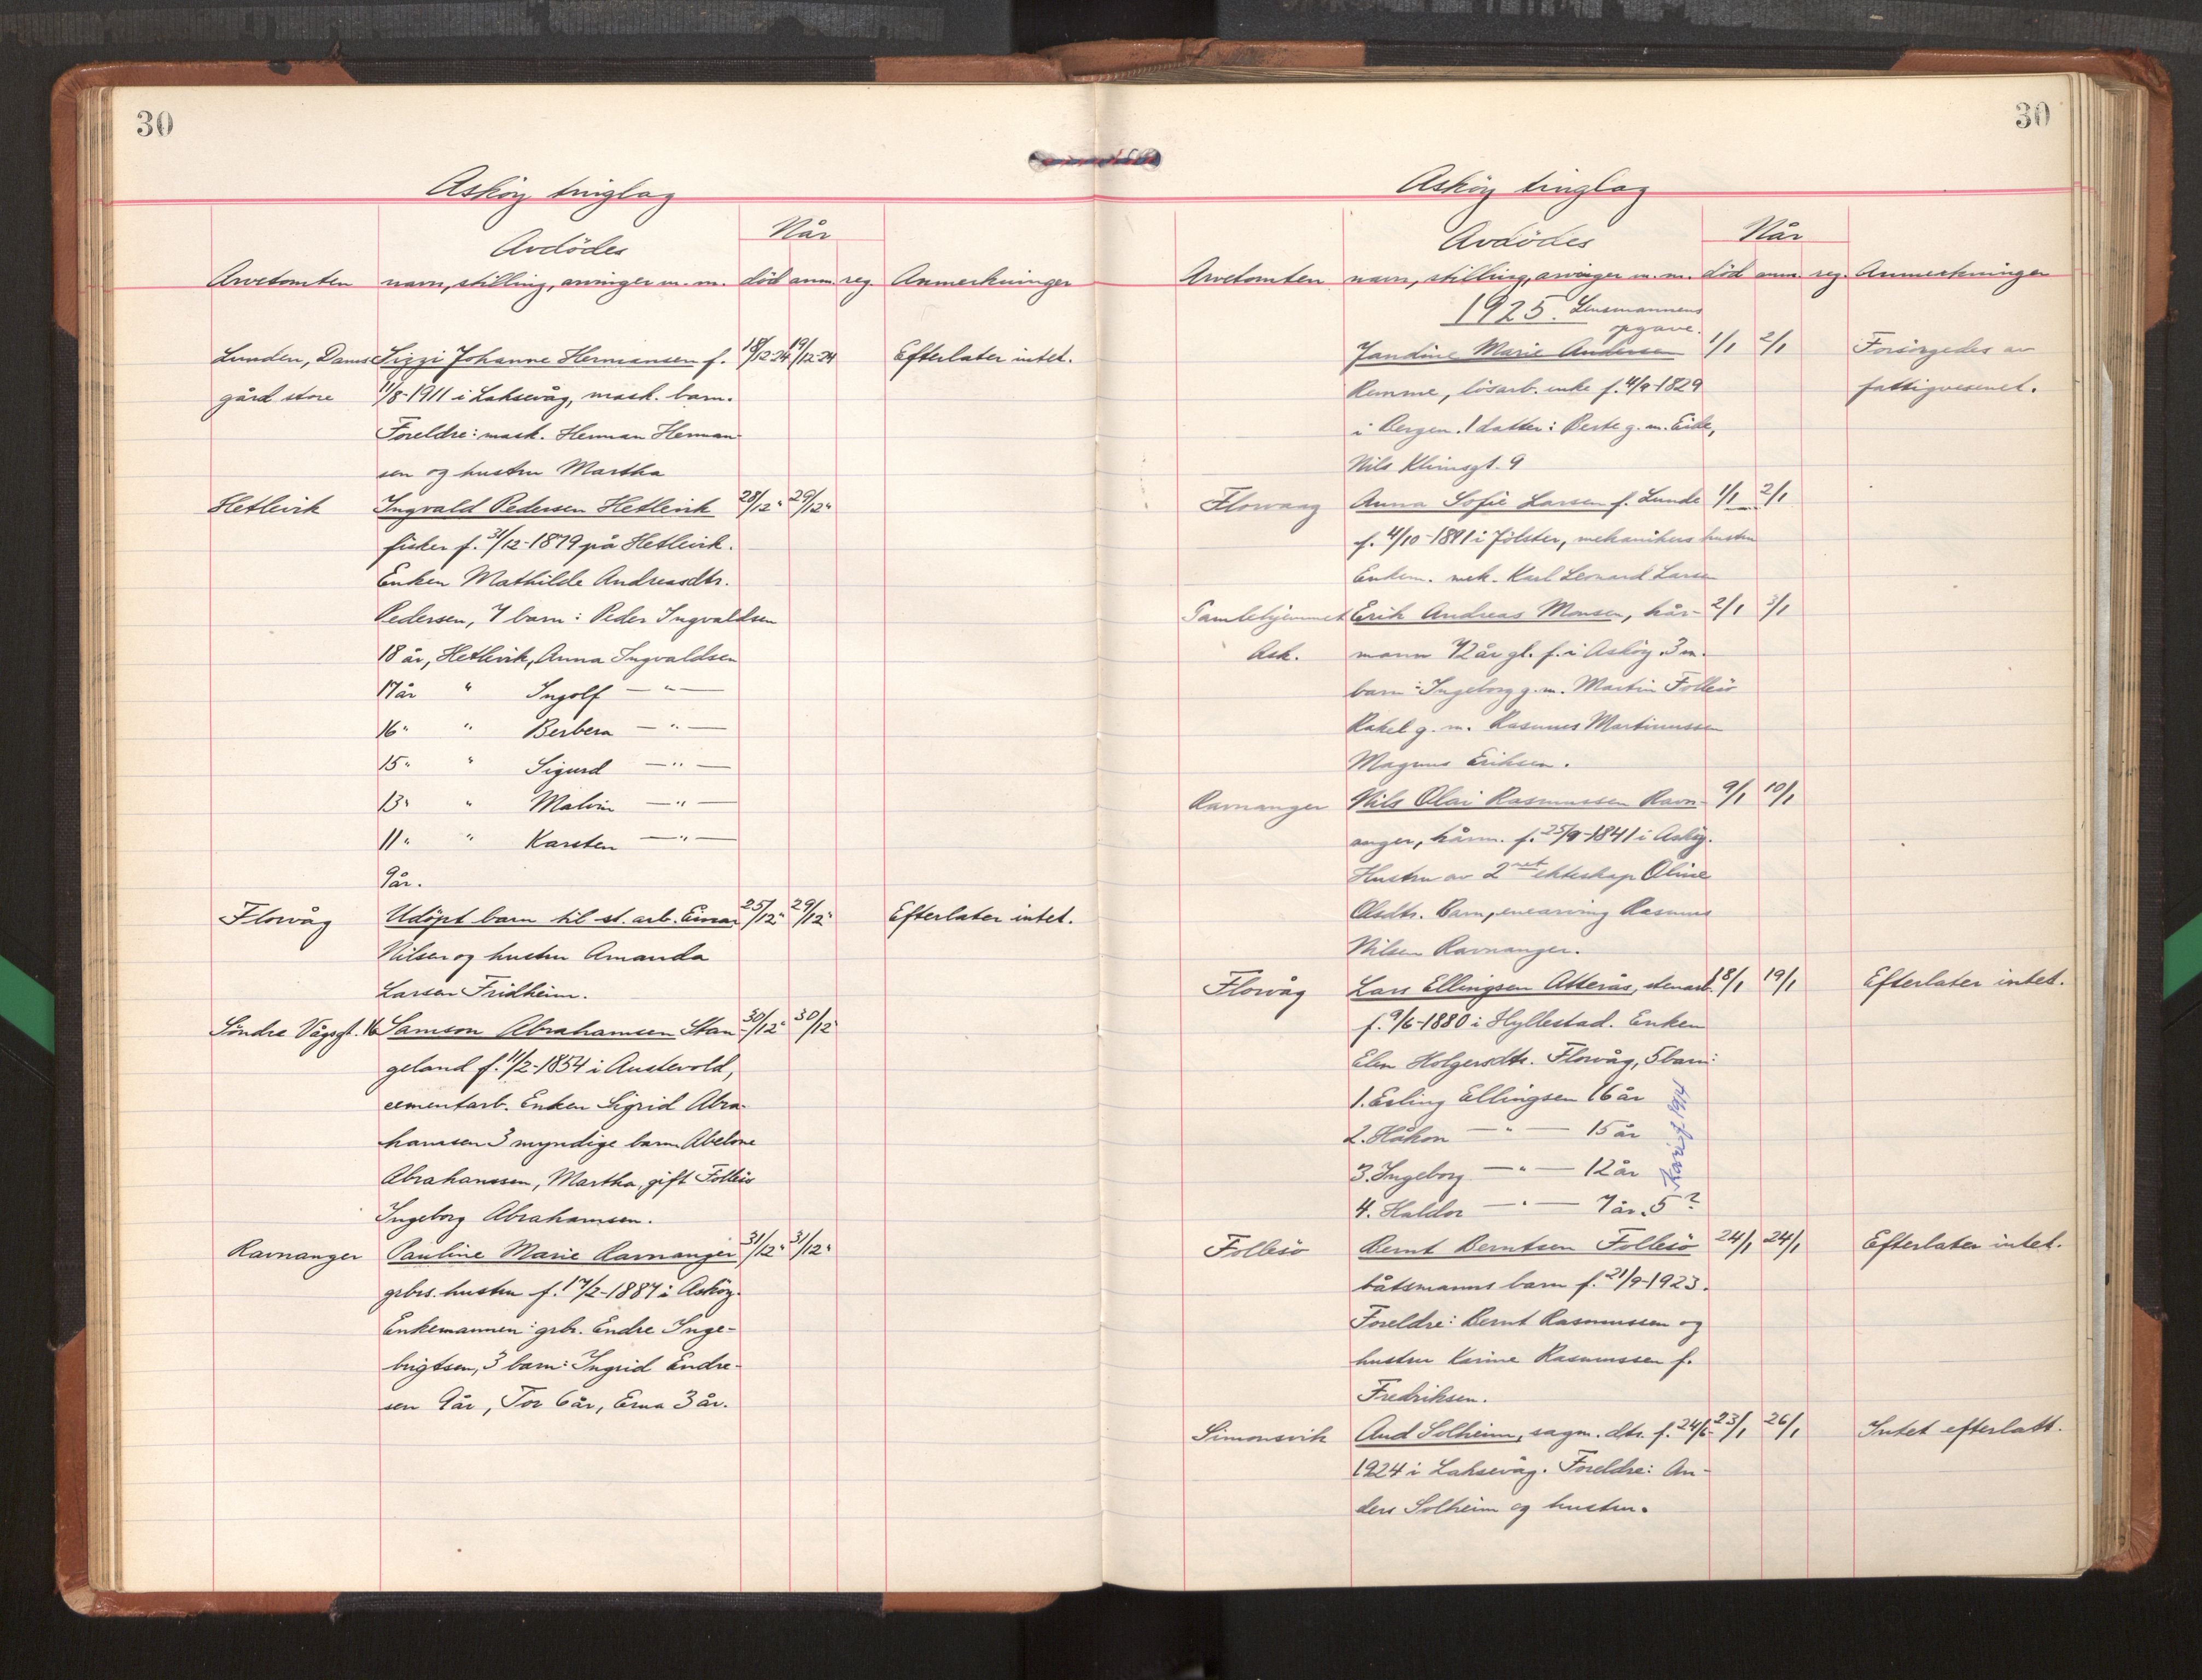 30
Askøy tinglag
Avdödes
Når
Arvetomten navn, stilling, arvinger m. m. död anm. reg. Anmerkninger
Lunden, Dams Lizzi Johanne Hermansen f. 18/12-24 19/12-24 Efterlater intet.
gård store 11/8-1911 i Laksevåg, mask. barn.
Foreldre: mask. Herman Herman
sen og hustru Martha
Hetlevik Ingvald Pedersen Hetlevik 28/12" 29/12"
fisker f. 31/12-1879 på Hetlevik.
Enken Mathilde Andreasdtr.
Pedersen, 7 barn: Peder Ingvaldsen
18 år, Hetlevik, Anna Ingvaldsen
17 år " Ingolf — " —
16 " " Berbera — " —
15 " " Sigurd — " —
13 " " Malvin — " —
11 " " Karsten — " —
9 år.
Florvåg Udöpt barn til st. arb. Einar 25/12" 29/12" Efterlater intet.
Nilsen og hustru Amanda
Larsen Fridheim.
Söndre Vågsgt. 16 Samson Abrahamsen Stan 30/12" 30/12"
geland f. 11/2-1854 i Austevold,
cementarb. Enken Sigrid Abra-
hamsen 3 myndige barn Abelone
Abrahamsen, Martha, gift Follesö
Ingeborg Abrahamsen.
Ravnanger Pauline Marie Ravnanger 31/12" 31/12"
grbrs. hustru f. 17/2-1884 i Asköy.
Enkemannen: grbr. Endre Inge-
brigtsen, 3 barn: Ingrid Endre-
sen 9 år, Tor 6 år, Erna 3 år.
30
Askøy tinglag
Avdödes
Når
Arvetomten navn, stilling, arvinger m. m. död anm. reg. Anmerkninger
1925. Lensmannens
opgave.
Jandine Marie Andersen 1/1 2/1 Forsörgedes av
Remme, lösarb. enke f. 4/9-1829 fattigvesenet.
i Bergen. 1 datter: Berte g. m. Eide,
Nils Klimsgt. 9
Florvaag Anna Sofie Larsen f. Lunde 1/1 2/1
f. 4/10-1891 i Jölster, mekanikers hustru
Enkem. mek. Karl Leonard Larsen
Gamlehjemmet Erik Andreas Monsen, hår- 2/1 3/1
Ask. mann 72 år gl. f. i Asköy. 3 m.
barn: Ingeborg g. m. Martin Follesö
Rakel g. m. Rasmus Martinussen
Magnus Eriksen.
Ravnanger Nils Olai Rasmussen Ravn- 9/1 10/1
anger, hårm. f. 25/9-1841 i Asköy.
Hustru av 2net ekteskap Oline
Olsdtr. Barn, enearving Rasmus
Nilsen Ravnanger.
Florvåg Lars Ellingsen Atterås, stenarb. 18/1 19/1 Efterlater intet.
f. 9/6-1880 i Hyllestad. Enken
Elen Holgersdtr. Florvåg, 5 barn:
1. Erling Ellingsen 16 år
2. Håkon — " — 15 år
3. Ingeborg — " — 12 år
4. Haldor — " — 7 år. 5?
Kari f. 1914
Follesö Bernt Berntsen Follesö 24/1 24/1 Efterlater intet.
båtsmanns barn f. 21/9-1923.
Foreldre: Bernt Rasmussen og
hustru Karine Rasmussen f.
Fredriksen.
Simonsvik Aud Solheim, sagm. dtr. f. 24/6- 23/1 26/1 Intet efterlatt.
1924 i Laksevåg. Foreldre: An-
ders Solheim og hustru.